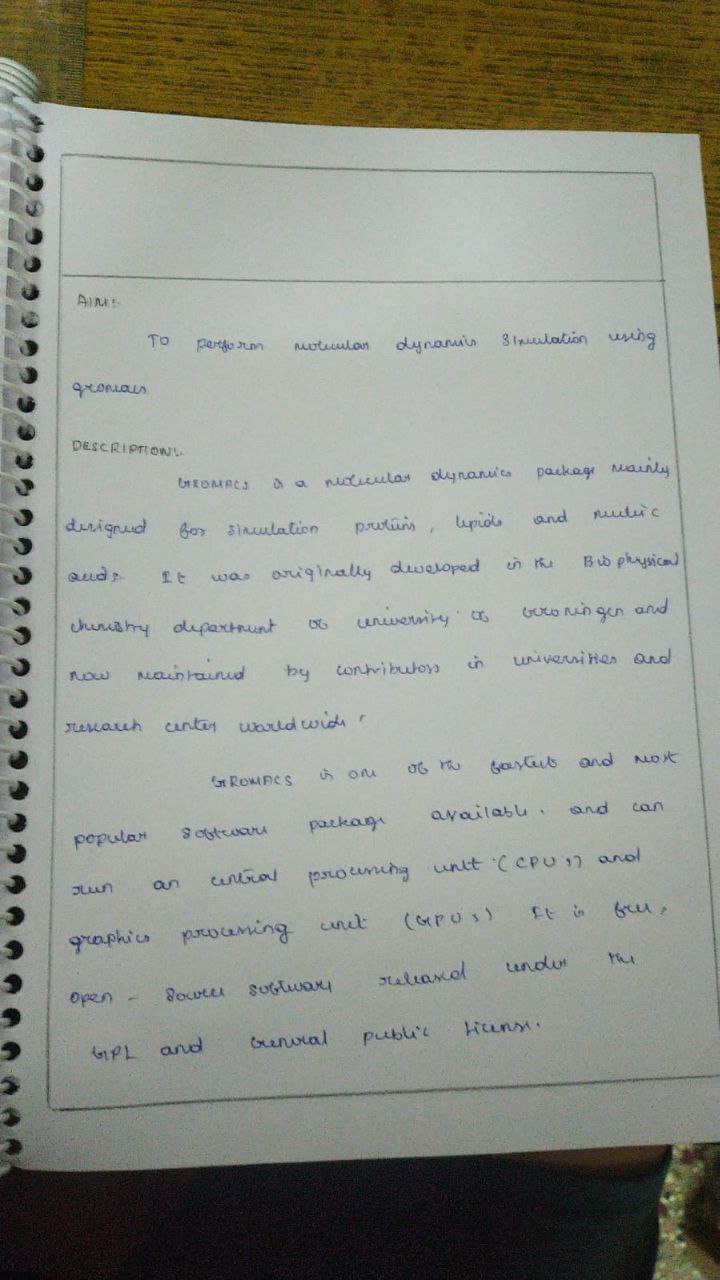 AIM:-
To perform molecular dynamics simulation using
gromacs
DESCRIPTION:-
GROMACS is a molecular dynamics package mainly
designed for simulation proteins, lipids and nucleic
acids. It was originally developed in the Biophysical
chemistry department of university of Groningen and
now maintained by contributors in universities and
research center worldwide.
GROMACS is one of the fastest and most
popular software package available. and can
run on central processing unit (CPU's) and
graphics processing unit (GPU's) It is free,
open - source software released under the
GPL and General public license.